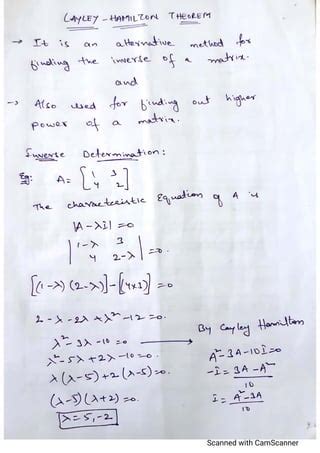 CAYLEY - HAMILTON THEOREM
→ It is an alternative method for
finding the inverse of a matrix.
and
→ Also used for finding out higher
power of a matrix.
Inverse Determination:
Eg: A = [1 3
4 2]
The characteristic Equation of A is
|A - λI| = 0
|1-λ 3
4 2-λ| = 0.
[(1-λ)(2-λ)] - [(4×3)] = 0
2 - λ - 2λ + λ² - 12 = 0.
λ² - 3λ - 10 = 0 → By Cayley Hamilton
λ² - 5λ + 2λ - 10 = 0. A² - 3A - 10I = 0
λ(λ-5) + 2(λ-5) = 0. -I = 3A - A² / 10
(λ-5)(λ+2) = 0. I = A² - 3A / 10
λ = 5, -2
Scanned with CamScanner